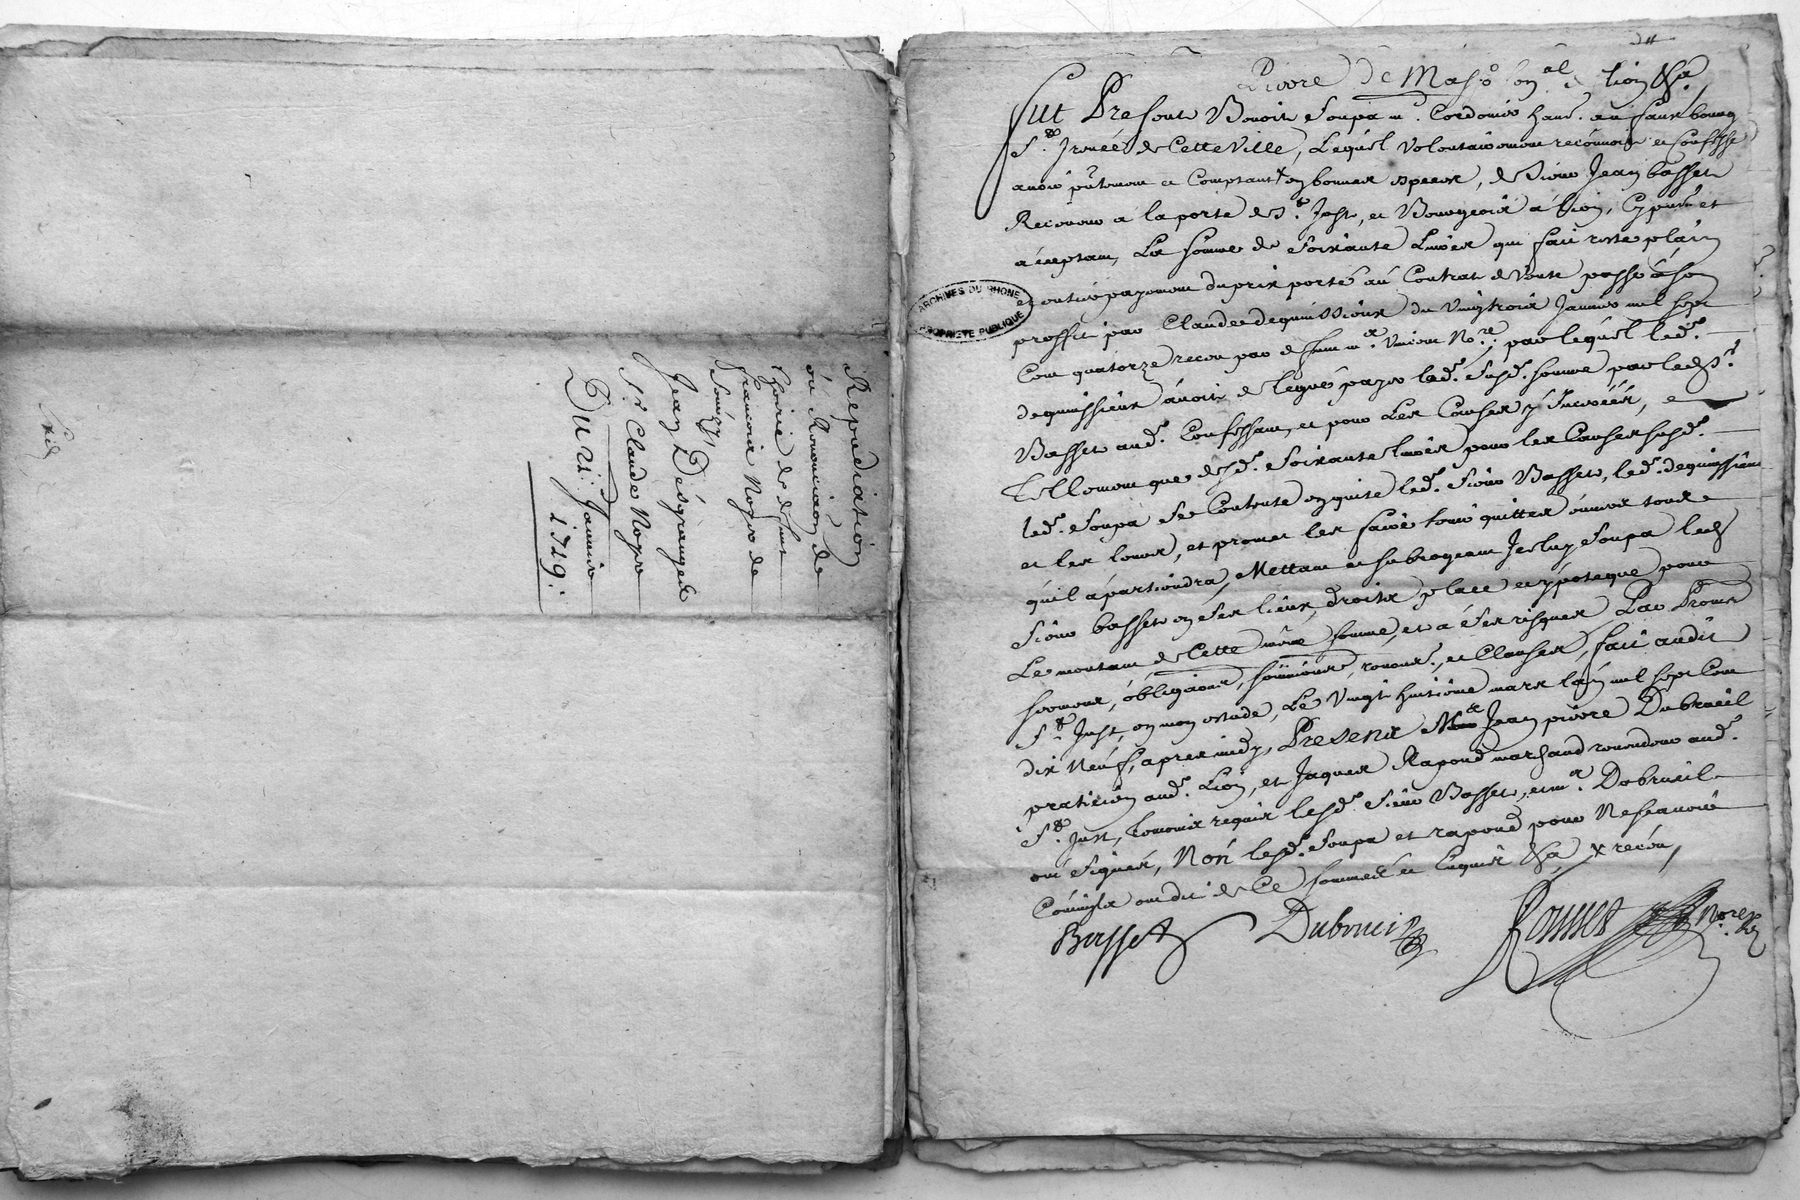 Répudiation
ou Renonciaon de
hoirie de defunt
francois Noyer de
Jean Desgranges
Sr Claude Noyer
Du 21 Janvier
1719.
ARCHIVES DU RHONE
PROPRIÉTÉ PUBLIQUE
Fut Present Benoit Soupa mre. Cordonier au faux bourg
St. Irenéé de Cette Ville, Lequel volontairement reconnoit et Confesse
avoir et Comptant en bonnes especes, de Sieur Jean basset
Receveur a la porte de St. Just, et Bourgeois a Lion, Cy present et
acceptant, La somme de Soixante Livres qui fait reste plain
et entier payement du prix porté au Contrat de Vente passé a son
proffit par Claude dequinssieux du Vingtroix Janvier mil sept
Cent quatorze receu par defunt mre. Vincent Nore. par lequel led.
dequinssieux avoit delegué payer lad. susd. somme par led. Sr.
Basset aud. Confessant, et pour Les Causes y Inserées, e
Tellement que desd. Soixante Livres pour les Causes susd.
led. Soupa se Contente en quite led. Sieur Basset, led. dequinssieux
et les leurs, et promet les faire tenir quittes envers tous
qu'il apartiendra, Mettant et subrogeant Iceluy Soupa led.
Sieur basset en ses lieux, droits place et ypoteque pour
Le montant de Cette même somme, et a ses risques Par Promes
serment, obligaons, soumions, renons., et Clauses, fait audit
St. Just, en mon estude, Le Vingt huitième mars l'an mil sept Cent
dix Neuf, apres midy, Presents Jean pierre Dubrueil
praticien aud. Lion, et Jaques Rapoud marchand revendeur aud.
St. Just, temoins requis lesd. Sieur Basset, et mr. Dubrueil
ont Signés, Non lesd. Soupa et rapoud pour Ne scavoir
Comme ils ont dit de Ce sommés et Enquis &a x receu,
Basset Dubrueil Nore